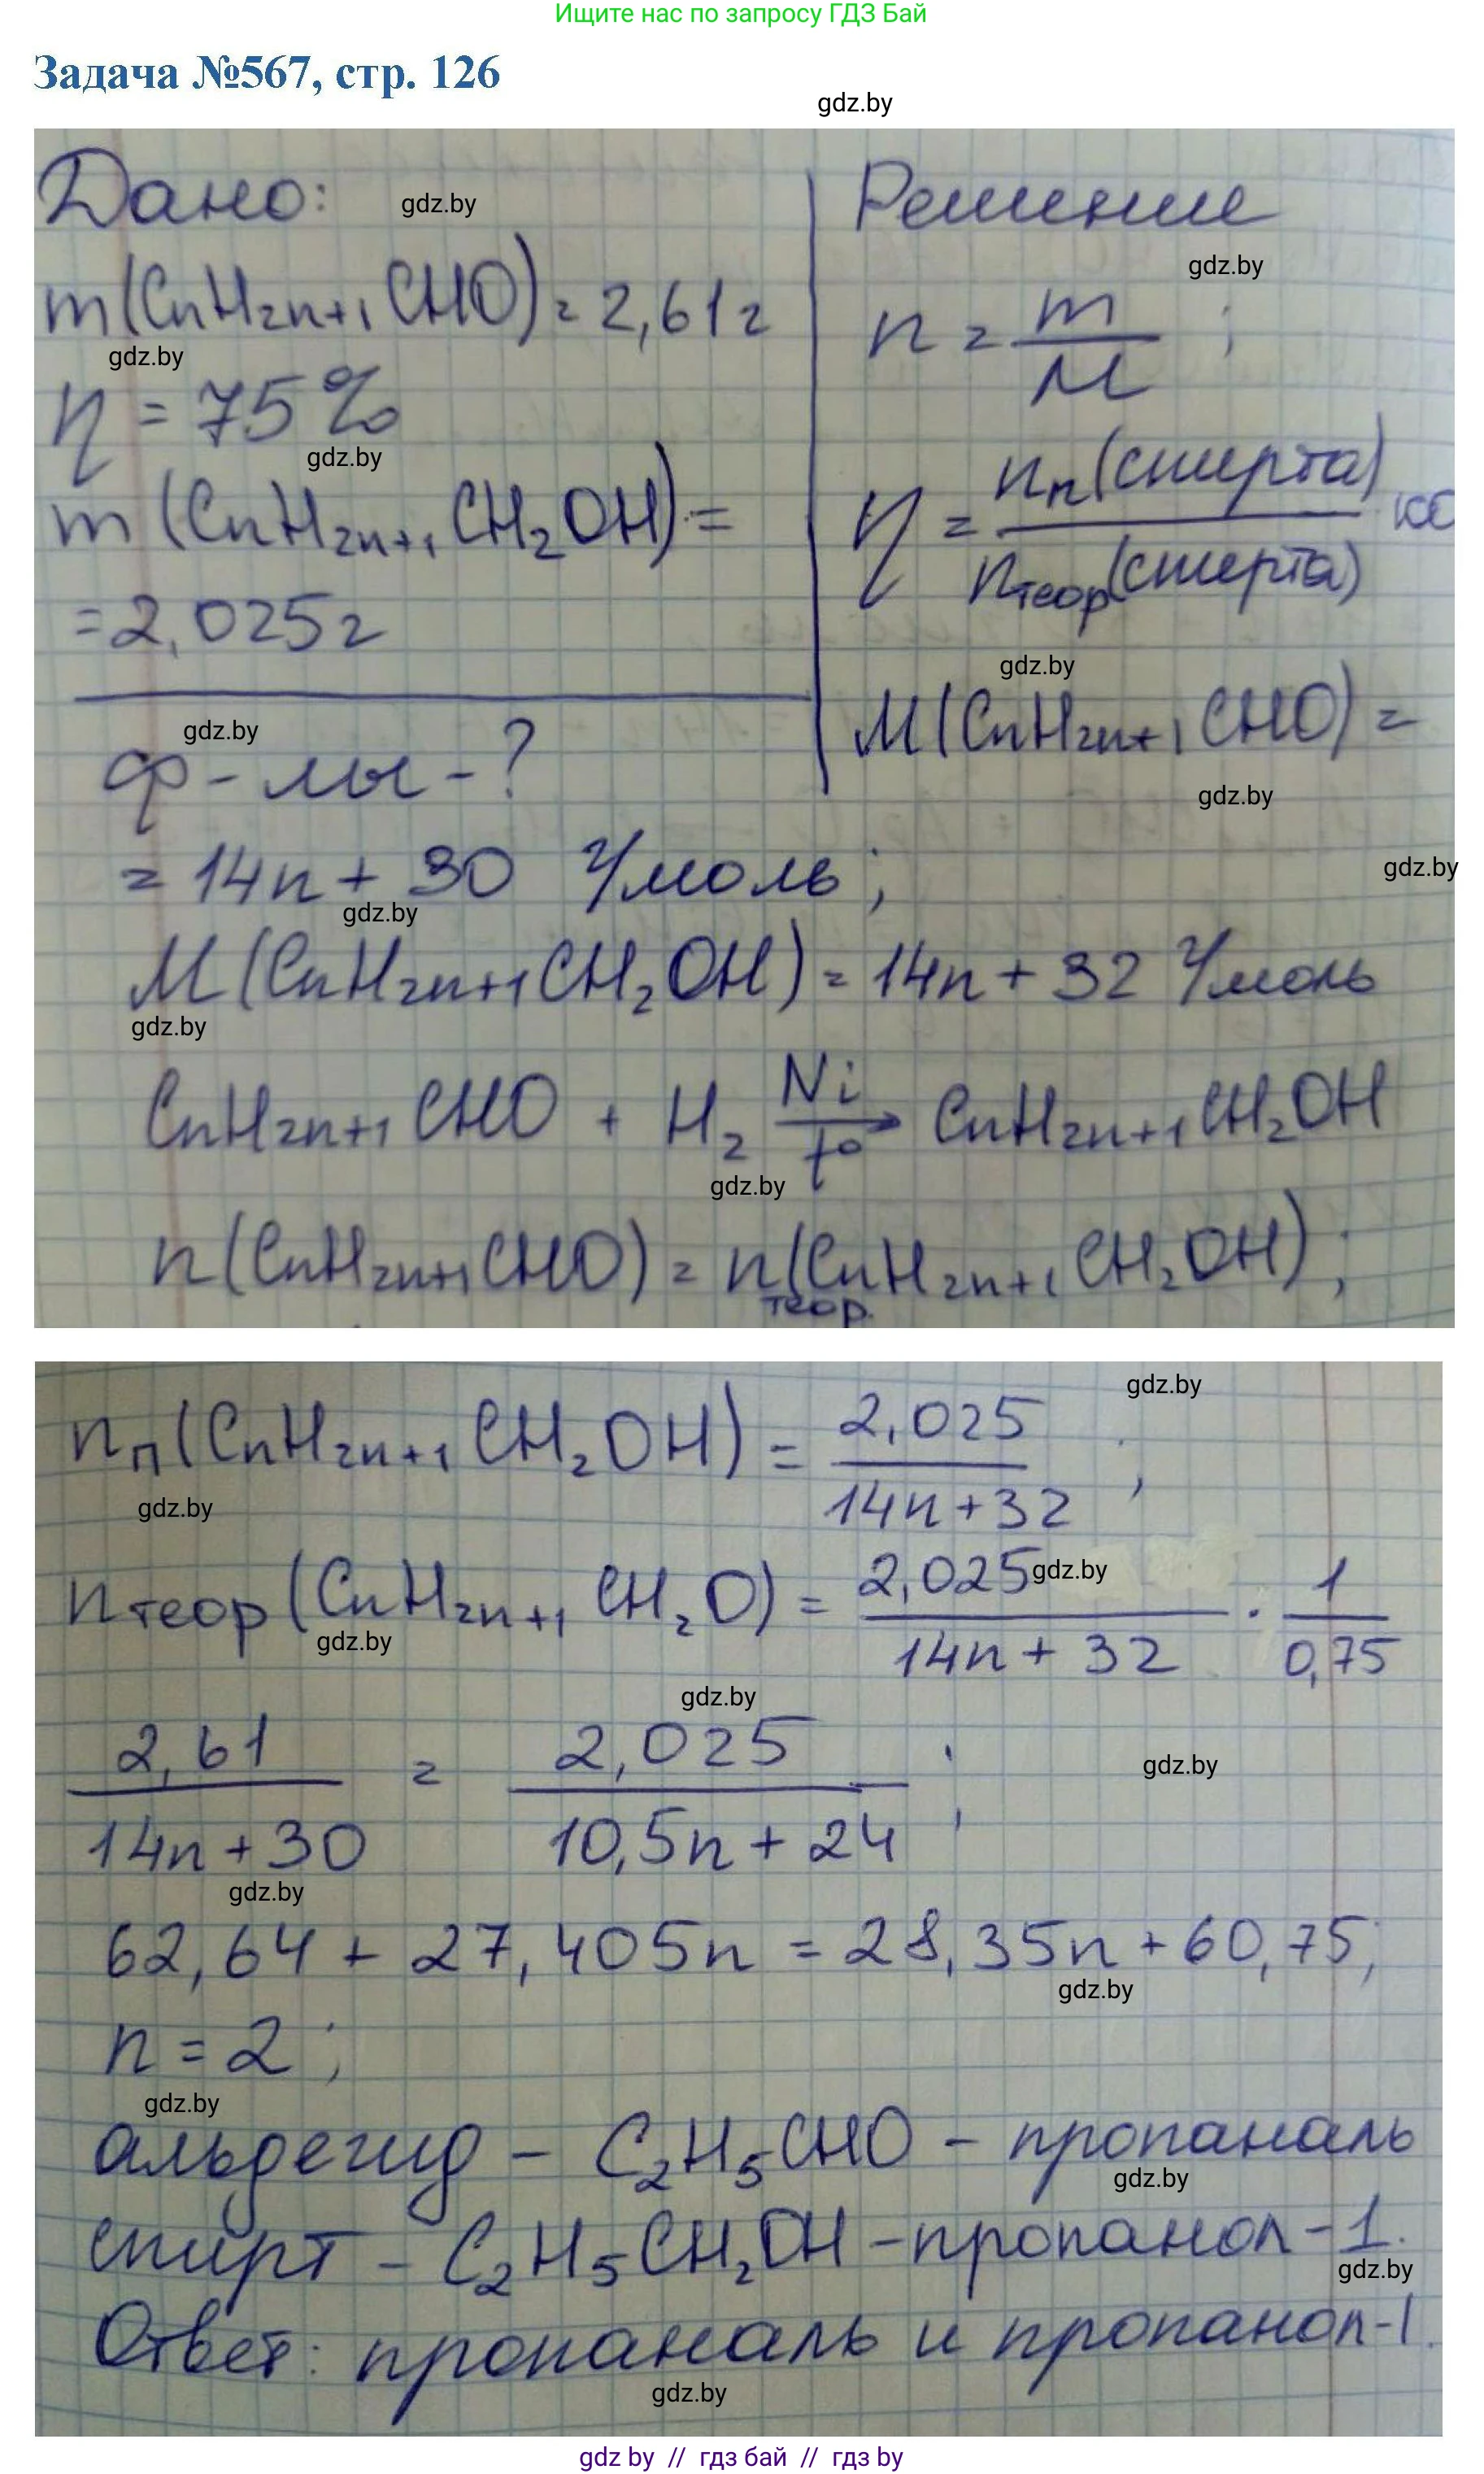 Ищите нас по запросу ГДЗ Бай
Задача №567, стр. 126
gdz.by
Дано:
gdz.by
m(CnH2n+1CHO) = 2,61г
gdz.by
η = 75%
gdz.by
m(CnH2n+1CH2OH) =
= 2,025г
gdz.by
ф-лы - ?
Решение
gdz.by
n = m/M ;
η = nп(спирта)/nтеор(спирта) · 100
gdz.by
M(CnH2n+1CHO) =
gdz.by
= 14n + 30 г/моль ;
gdz.by
gdz.by
M(CnH2n+1CH2OH) = 14n + 32 г/моль
gdz.by
CnH2n+1CHO + H2 Ni→t° CnH2n+1CH2OH
gdz.by
n(CnH2n+1CHO) = nтеор.(CnH2n+1CH2OH) ;
gdz.by
nп(CnH2n+1CH2OH) = 2,025/14n+32 ;
gdz.by
nтеор(CnH2n+1CH2O) = 2,025/14n+32 · 1/0,75
gdz.by
gdz.by
gdz.by
2,61/14n+30 = 2,025/10,5n+24 ;
gdz.by
gdz.by
62,64 + 27,405n = 28,35n + 60,75;
gdz.by
n = 2 ;
gdz.by
альдегид - C2H5CHO - пропаналь
gdz.by
спирт - C2H5CH2OH - пропанол-1.
gdz.by
Ответ: пропаналь и пропанол-1.
gdz.by
gdz by // гдз бай // гдз by